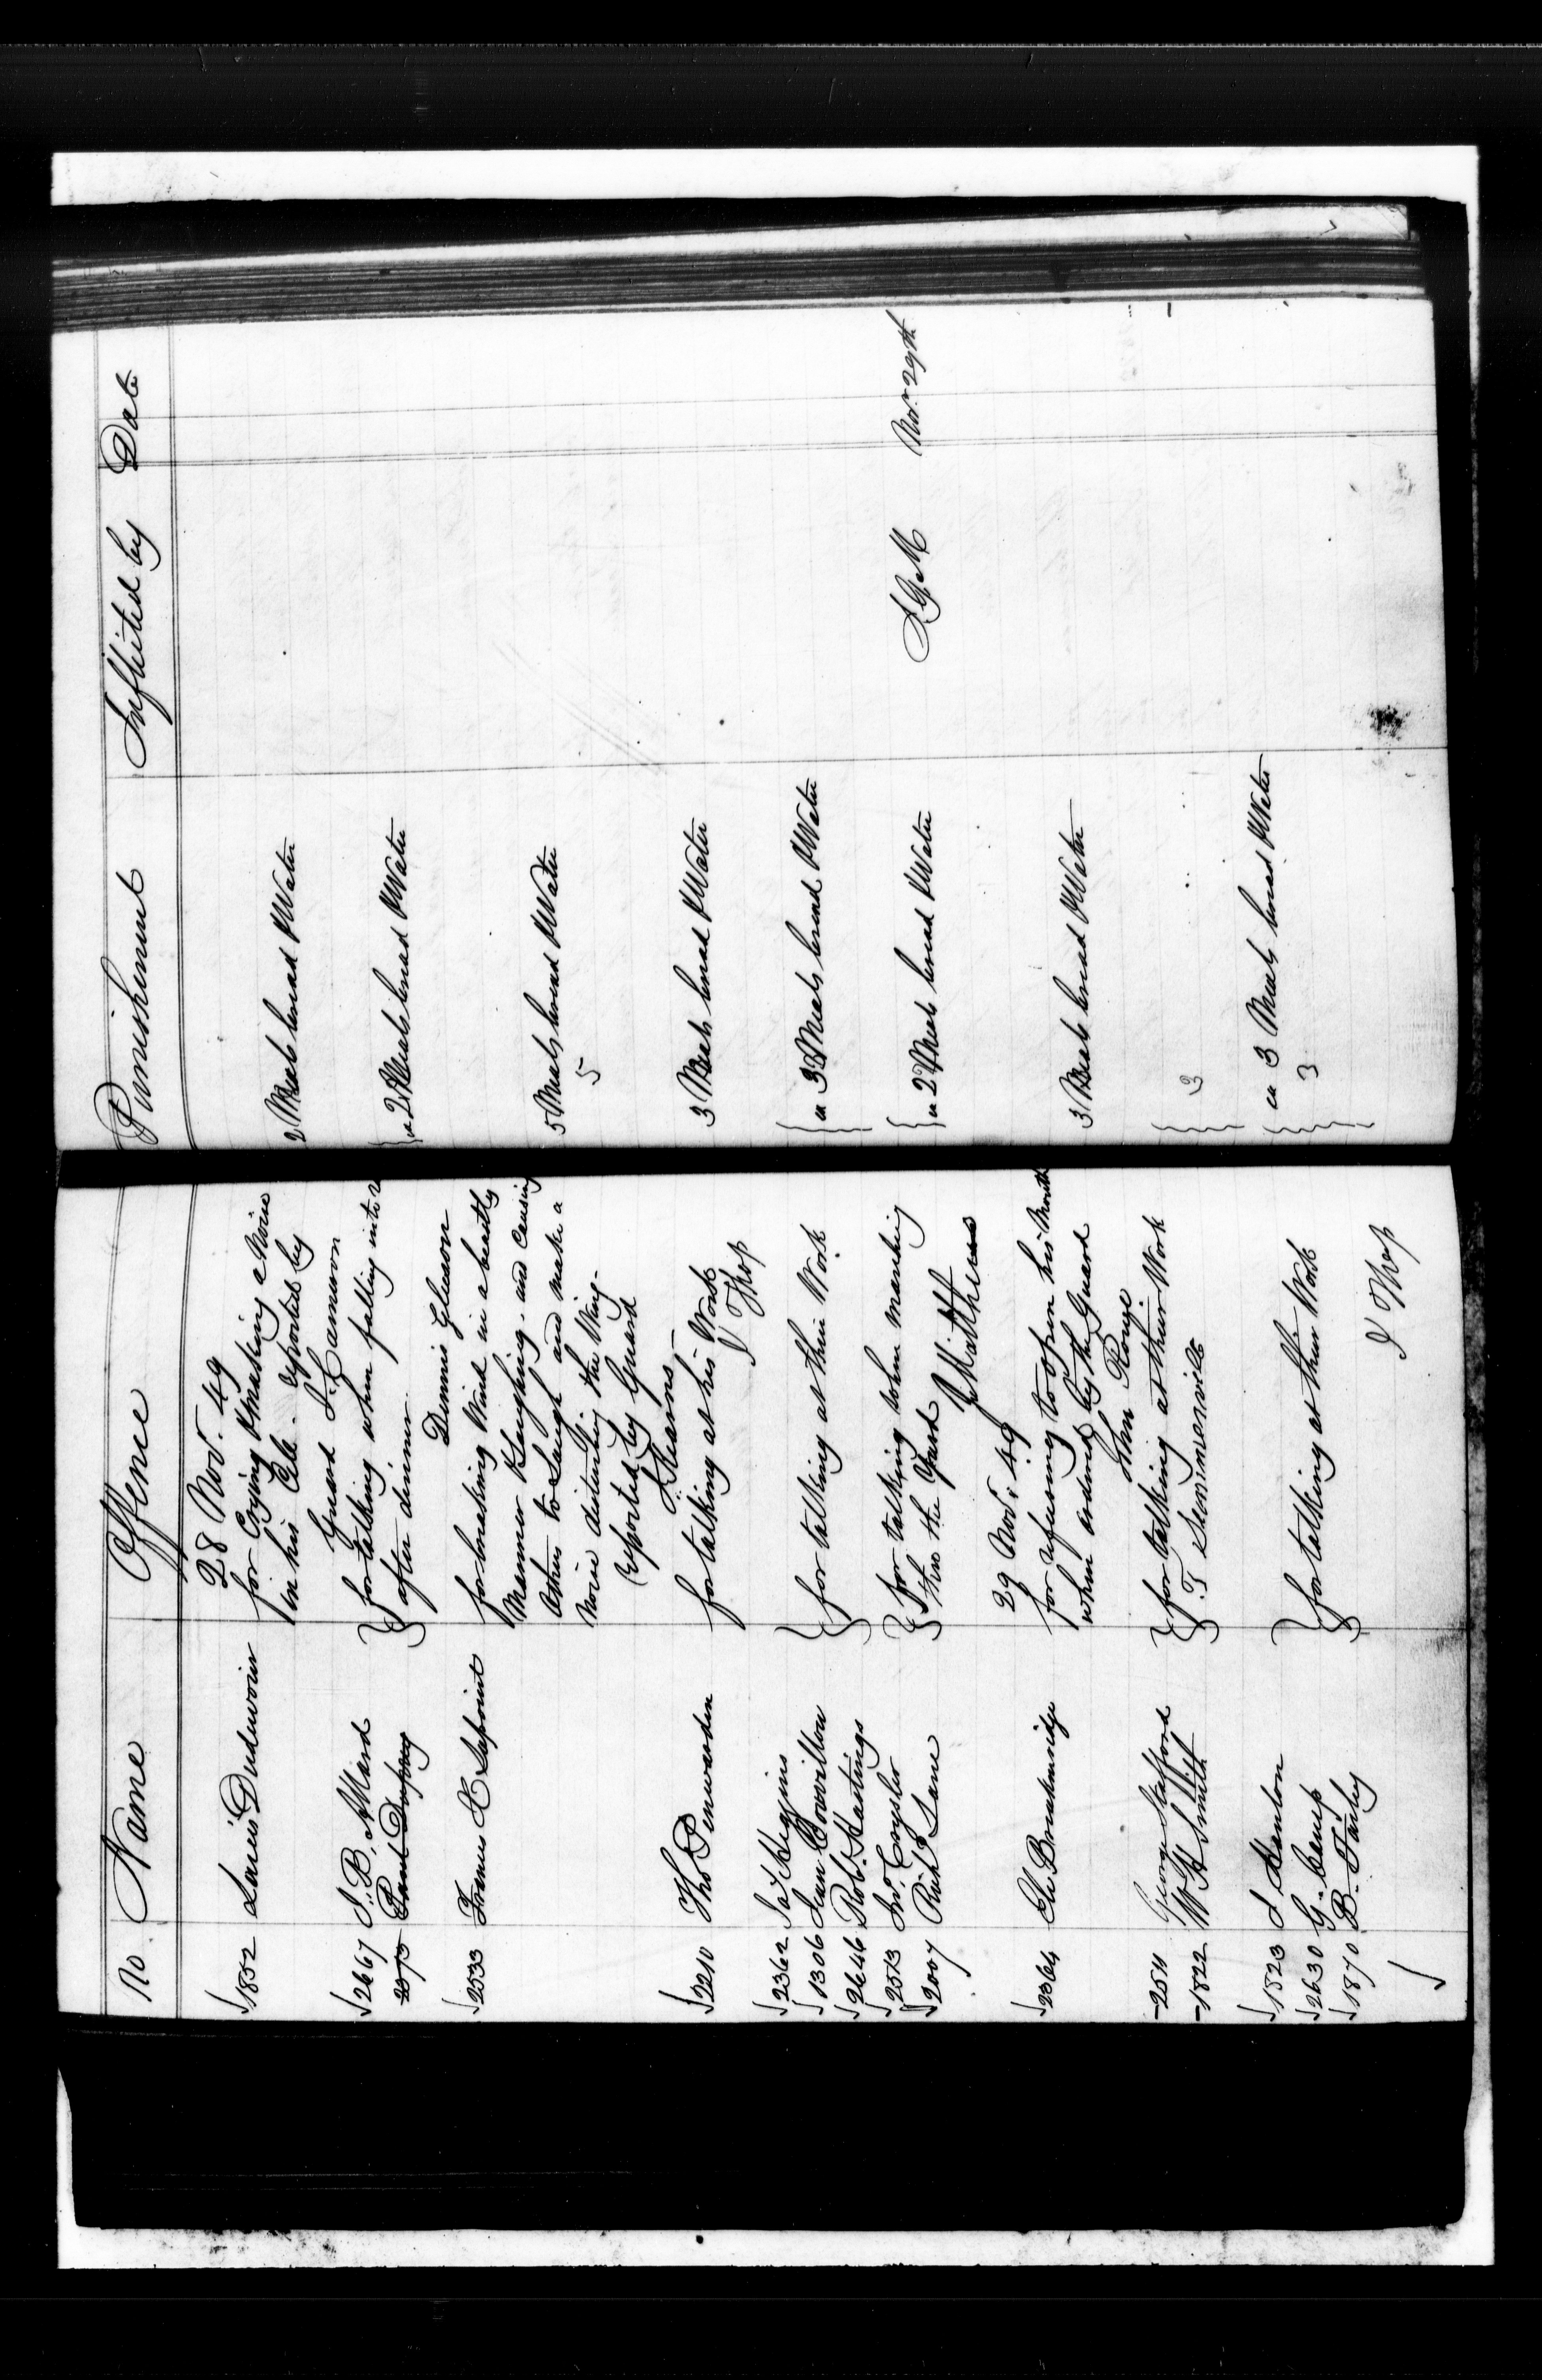 No. Name Offence Punishment Inflicted by Date
28 Nov. 49
1852 Louis Dudevoir for Crying & making a Noise 2 Meals bread & Water
in his Cell - reported by
Guard J. Cameron
2667 J. B. Allard for talking when falling into
2 Meals bread & Water
2373 Paul Dupuy after dinner
Dennis Gleeson
2533 Francis X Lapoint for breaking Wind in a beastly
Manner & laughing - and causing 5 Meals bread & Water
Others to Laugh and make a 5
Noise disturbing the Wing -
reported by Guard
Kearns
2210 Tho Penwarden for talking at his Work 3 Meals bread & Water
J Thop
2362 Ja Higgins
1306 Jean Couvillon for talking at their Work 3 Meals bread & Water
2646 Rob. Hastings
2513 Jno. Crysler for talking when marching 2 Meals bread & Water Nov. 29th
2007 Richd Lane thro the Yard
J Matthews
29 Nov. 49
2364 Ge Breakenridge for refusing to open his Mouth 3 Meals bread & Water
when ordered by the Guard
John
2511 George Stafford for talking at their Work 3
1822 W H Smith T Summerville
1823 J Hanlon
2630 G. Camp for talking at their Work 3 Meals bread & Water
1870 B. Farley 3
J Thop